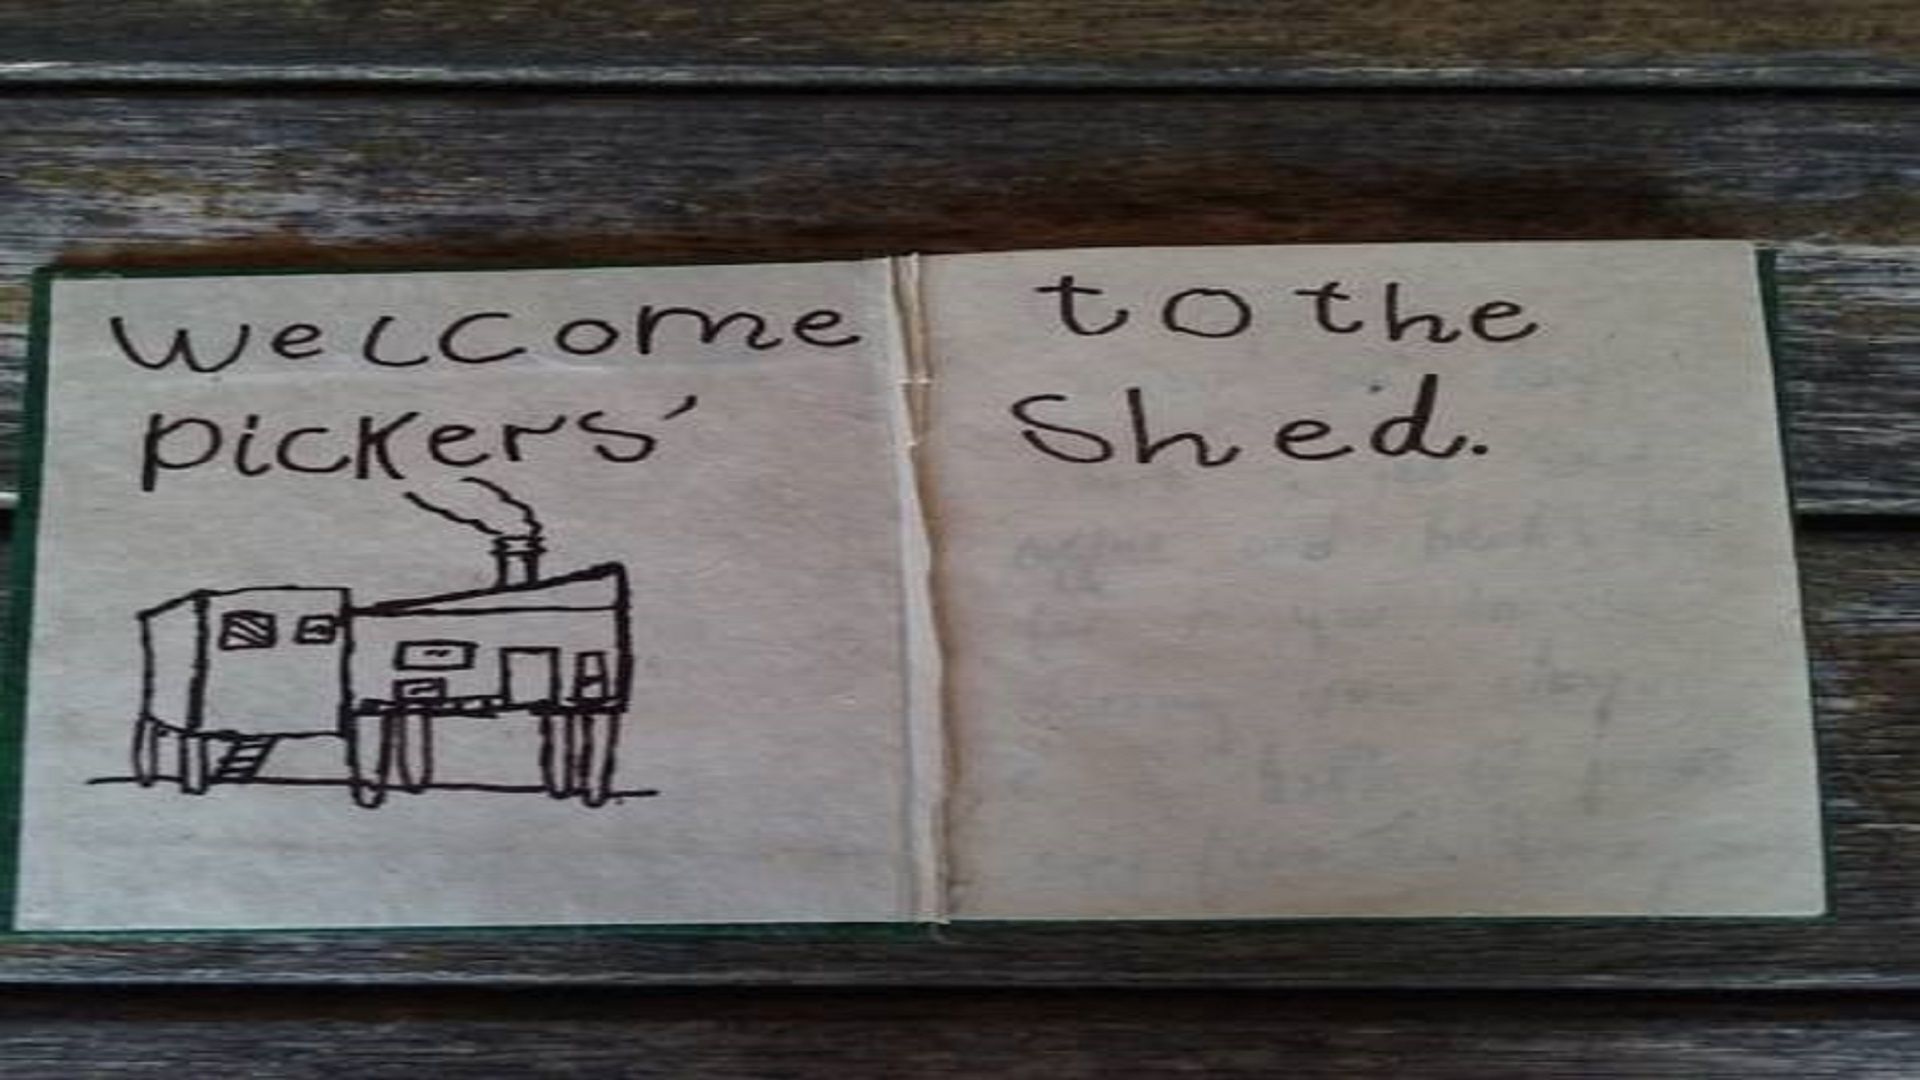 Welcome to the
pickers' Shed.